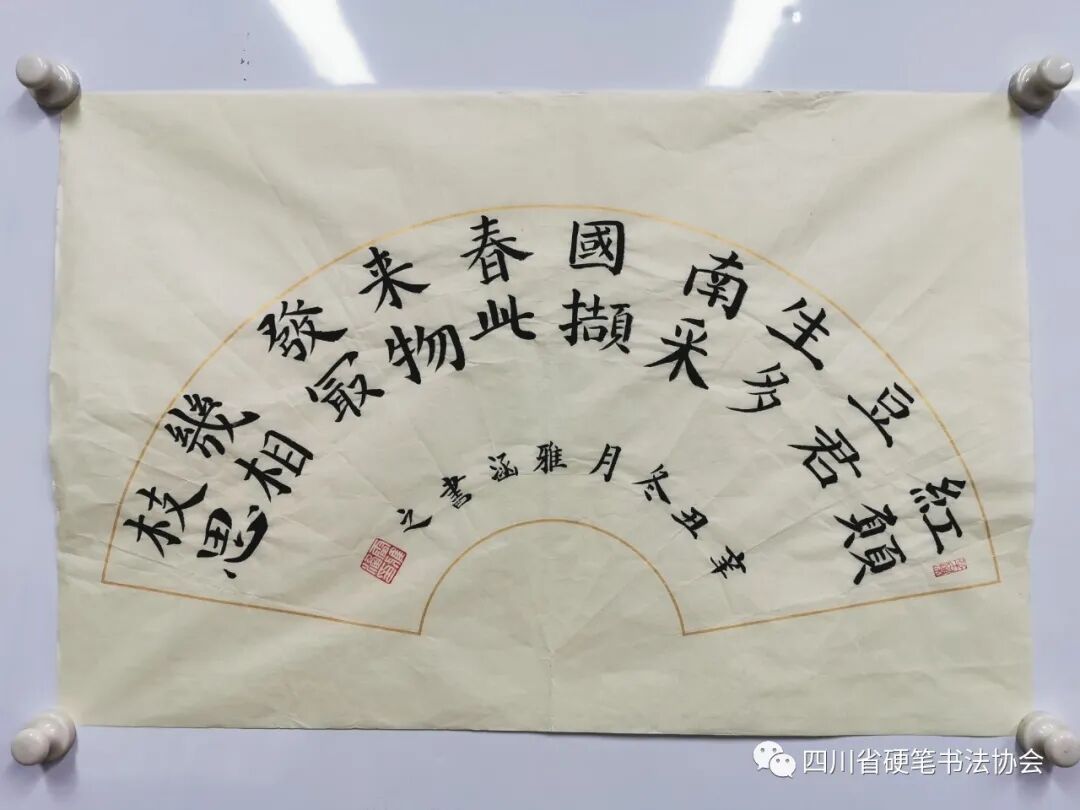 紅豆生南國春来發幾枝
願君多采擷此物最相思
辛丑冬月雅涵書之
四川省硬笔书法协会